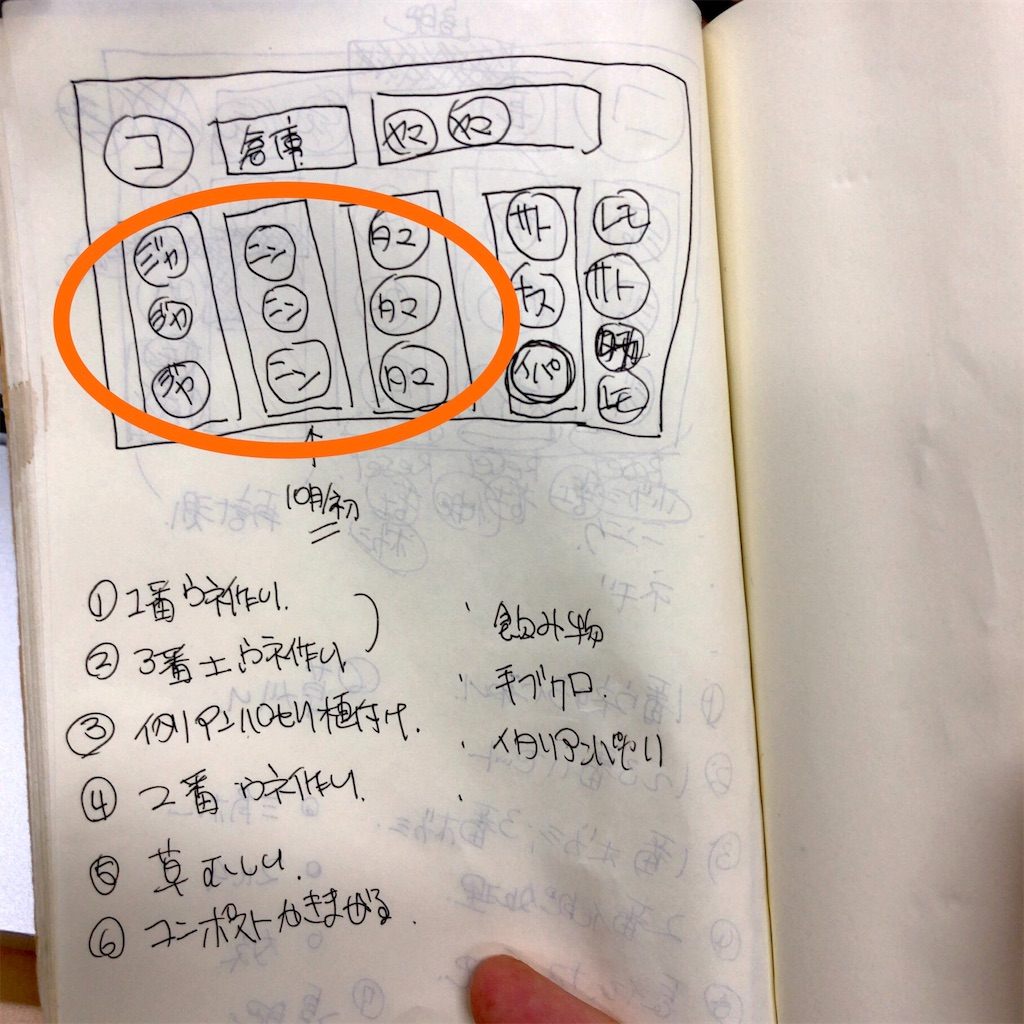 コ 倉庫 ヤマ ヤマ
ジャ ニン タマ サト レモ
ジャ ニン タマ ナス サト
ジャ ニン タマ イパ レモ
↑
10月初
① 1番ウネ作り.
② 3番土ウネ作り.
③ イタリアンパセリ植付け.
④ 2番ウネ作り.
⑤ 草むしり.
⑥ コンポストかきまぜる.
・飲み物
・手ブクロ.
・イタリアンパセリ
・